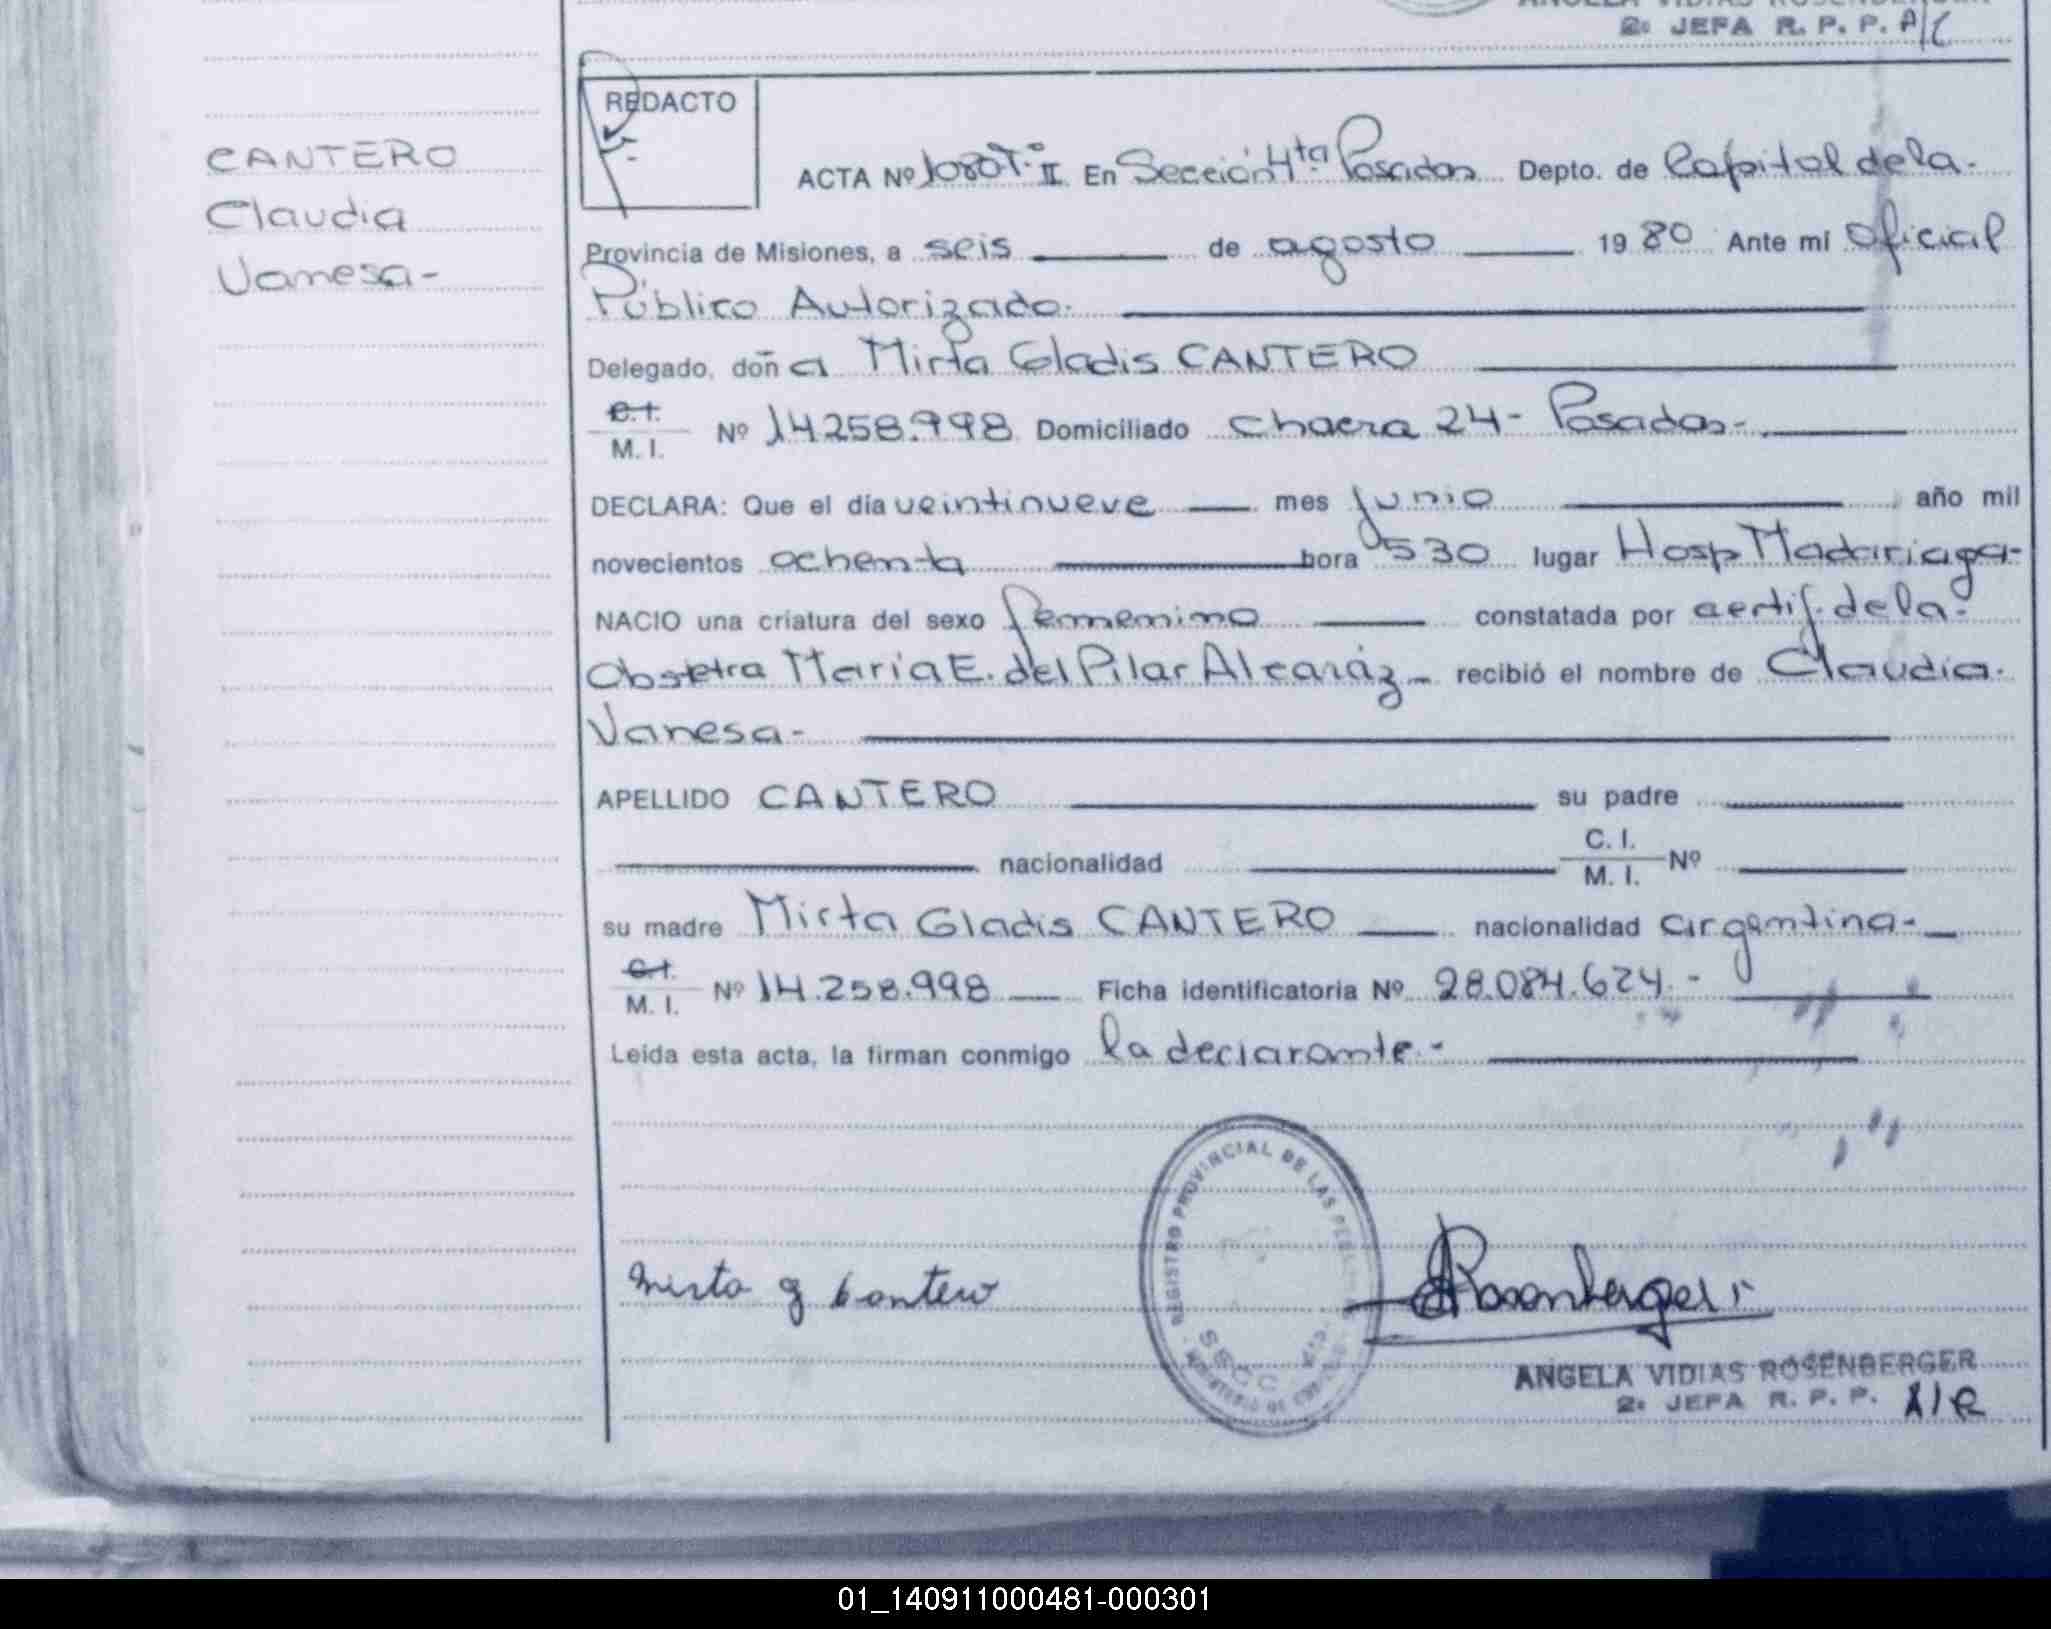 ANGELA VIDIAS ROSENBERGER
2: JEFA R. P. P. A/C
REDACTO
CANTERO
Claudia
Vanesa-
ACTA Nº 1080 T. II En Sección 4ta Posadas Depto. de Capital de la
Provincia de Misiones, a seis de agosto 1980 Ante mi Oficial
Público Autorizado.
Delegado, doña Mirta Gladis CANTERO
C.I.
M. I. Nº 14.258.998 Domiciliado Chacra 24- Posadas-
DECLARA: Que el día veintinueve mes junio año mil
novecientos ochenta hora 530 lugar Hosp Madariaga-
NACIO una criatura del sexo femenino constatada por certif. de la
Obstetra María E. del Pilar Alcaráz- recibió el nombre de Claudia
Vanesa-
APELLIDO CANTERO su padre
nacionalidad C. I.
M. I. Nº
su madre Mirta Gladis CANTERO nacionalidad argentina-
C.I.
M. I. Nº 14.258.998 Ficha identificatoria Nº 28.084.624.-
Leída esta acta, la firman conmigo la declarante.-
REGISTRO PROVINCIAL DE LAS
SECC
Mirta g Cantero
Rosenberger
ANGELA VIDIAS ROSENBERGER
2: JEFA R. P. P.
01_140911000481-000301